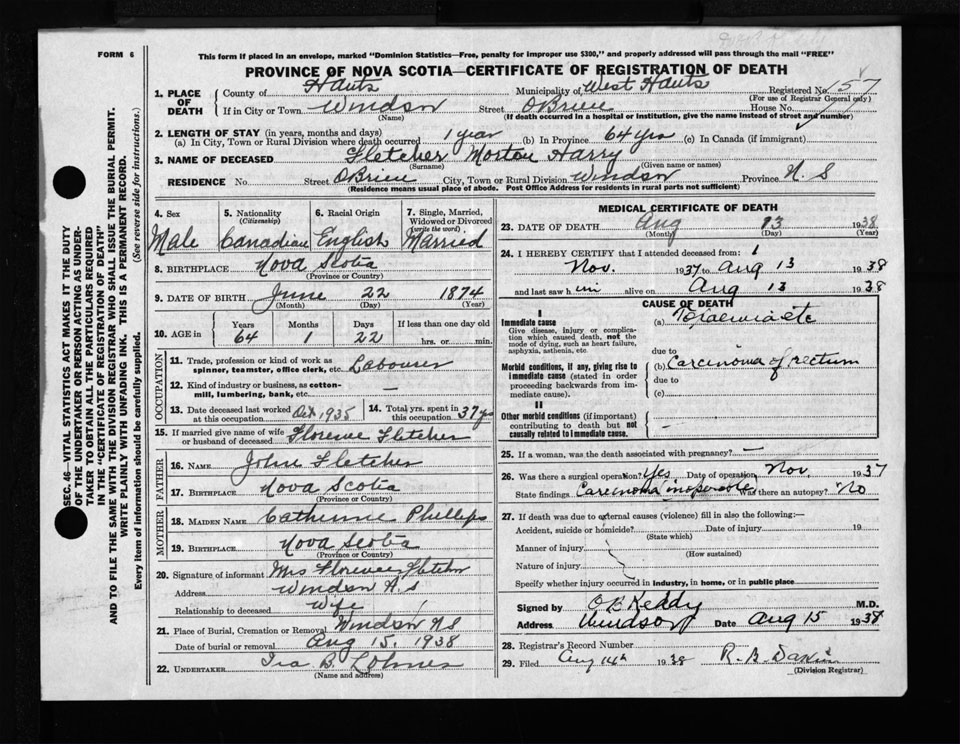 FORM 6
This form if placed in an envelope, marked "Dominion Statistics—Free, penalty for improper use $300," and properly addressed will pass through the mail "FREE"
PROVINCE OF NOVA SCOTIA—CERTIFICATE OF REGISTRATION OF DEATH
1. PLACE OF DEATH
County of Hants Municipality of West Hants Registered No. 157
(For use of Registrar General only)
If in City or Town Windsor Street OBrien House No.
(Name) (If death occurred in a hospital or institution, give the name instead of street and number)
2. LENGTH OF STAY (in years, months and days)
(a) In City, Town or Rural Division where death occurred 1 year (b) In Province 64 yrs (c) In Canada (if immigrant)
3. NAME OF DECEASED Fletcher Morton Harry
(Surname) (Given name or names)
RESIDENCE No. Street OBrien City, Town or Rural Division Windsor Province N.S
(Residence means usual place of abode. Post Office Address for residents in rural parts not sufficient)
4. Sex 5. Nationality (Citizenship) 6. Racial Origin 7. Single, Married, Widowed or Divorced (write the word)
Male Canadian English Married
8. BIRTHPLACE Nova Scotia
(Province or Country)
9. DATE OF BIRTH June 22 1874
(Month) (Day) (Year)
10. AGE in Years Months Days If less than one day old
64 1 22 hrs. or min.
OCCUPATION
11. Trade, profession or kind of work as spinner, teamster, office clerk, etc. Labourer
12. Kind of industry or business, as cotton-mill, lumbering, bank, etc. —
13. Date deceased last worked at this occupation Oct 1935 14. Total yrs. spent in this occupation 37 yrs
15. If married give name of wife or husband of deceased Florence Fletcher
FATHER
16. NAME John Fletcher
17. BIRTHPLACE Nova Scotia
(Province or Country)
MOTHER
18. MAIDEN NAME Catherine Phillips
19. BIRTHPLACE Nova Scotia
(Province or Country)
20. Signature of informant Mrs Florence Fletcher
Address Windsor N.S
Relationship to deceased Wife
21. Place of Burial, Cremation or Removal Windsor NS
Date of burial or removal Aug 15, 1938
22. UNDERTAKER Ira B. Lohnes
(Name and address)
MEDICAL CERTIFICATE OF DEATH
23. DATE OF DEATH Aug 13 1938
(Month) (Day) (Year)
24. I HEREBY CERTIFY that I attended deceased from:
Nov. 1937 to Aug 13 1938
and last saw him alive on Aug 13 1938
CAUSE OF DEATH
I
Immediate cause (a) Toxaemia etc
Give disease, injury or complication which caused death, not the mode of dying, such as heart failure, asphyxia, asthenia, etc
due to
Morbid conditions, if any, giving rise to immediate cause (stated in order proceeding backwards from immediate cause). (b) Carcinoma of rectum
due to
(c)
II
Other morbid conditions (if important) contributing to death but not causally related to immediate cause.
25. If a woman, was the death associated with pregnancy? —
26. Was there a surgical operation? Yes Date of operation Nov 1937
State findings Carcinoma inoperable Was there an autopsy? No
27. If death was due to external causes (violence) fill in also the following:—
Accident, suicide or homicide? Date of injury 19
(State which)
Manner of injury
(How sustained)
Nature of injury
Specify whether injury occurred in industry, in home, or in public place
Signed by O E Keddy M.D.
Address Windsor Date Aug 15 1938
28. Registrar's Record Number
29. Filed Aug 14th 1938 R. B. Davis
(Division Registrar)
SEC. 46—VITAL STATISTICS ACT MAKES IT THE DUTY
OF THE UNDERTAKER OR PERSON ACTING AS UNDER-
TAKER TO OBTAIN ALL THE PARTICULARS REQUIRED
IN THE "CERTIFICATE OF REGISTRATION OF DEATH"
AND TO FILE THE SAME WITH THE DIVISION REGISTRAR WHO SHALL ISSUE THE BURIAL PERMIT.
WRITE PLAINLY WITH UNFADING INK. THIS IS A PERMANENT RECORD.
Every item of information should be carefully supplied. (See reverse side for instructions.)